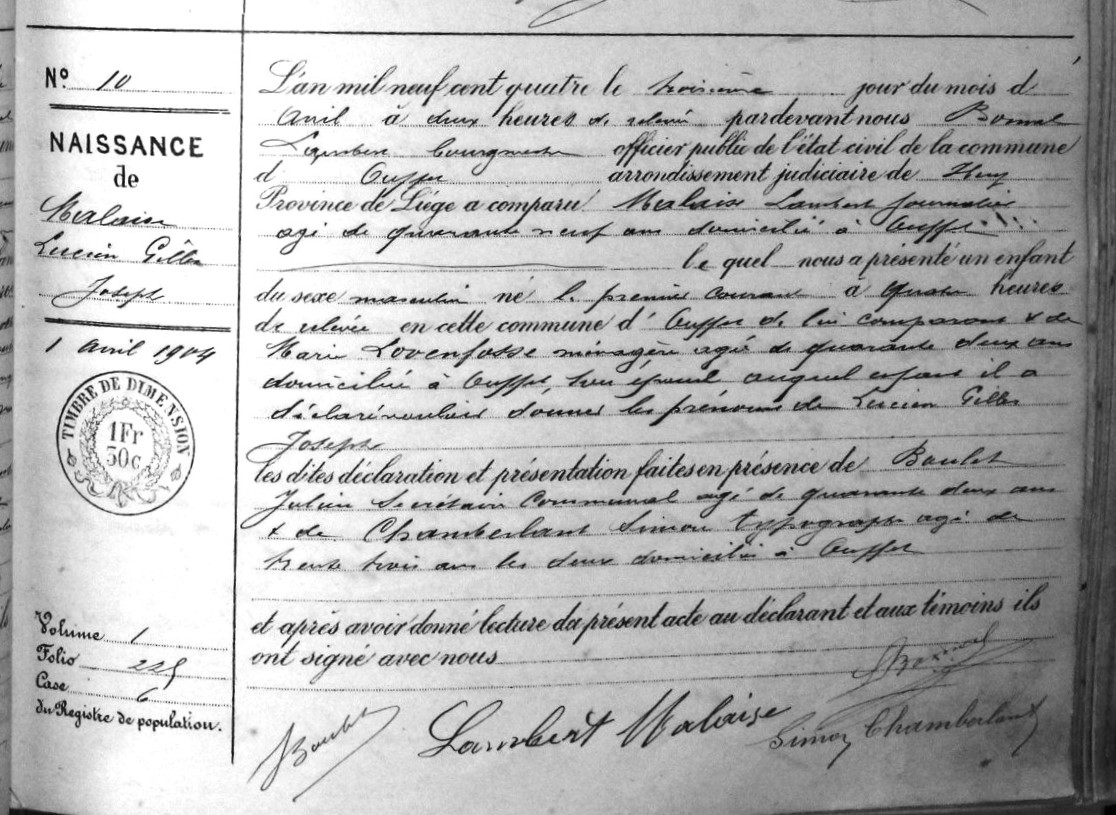 Nº 10
NAISSANCE
de
Malaise
Lucien Gilles
Joseph
1 avril 1904
TIMBRE DE DIMENSION
1Fr
30c
Volume 1
Folio 225
Case 6
du Registre de population.
L'an mil neuf cent quatre le troisième jour du mois d
Avril à deux heures de relevée pardevant nous Bonnal
Lambert bourgmestre officier public de l'état civil de la commune
d Ouffet arrondissement judiciaire de Huy
Province de Liége a comparu Malaise Lambert journalier
agé de quarante neuf ans domicilié à Ouffet
le quel nous a présenté un enfant
du sexe masculin né le premier courant à quatre heures
de relevée en cette commune d' Ouffet de lui comparant & de
Marie Lovenfosse ménagère agée de quarante deux ans
domiciliée à Ouffet, son épouse auquel enfant il a
déclaré vouloir donner les prénoms de Lucien Gilles
Joseph
les dites déclaration et présentation faites en présence de Boulet
Julien Secrétaire Communal agé de quarante deux ans
& de Chamberlant Simon typographe agé de
trente trois ans les deux domiciliés à Ouffet
et après avoir donné lecture du présent acte au déclarant et aux témoins ils
ont signé avec nous
Boulet Lambert Malaise Simon Chamberlant